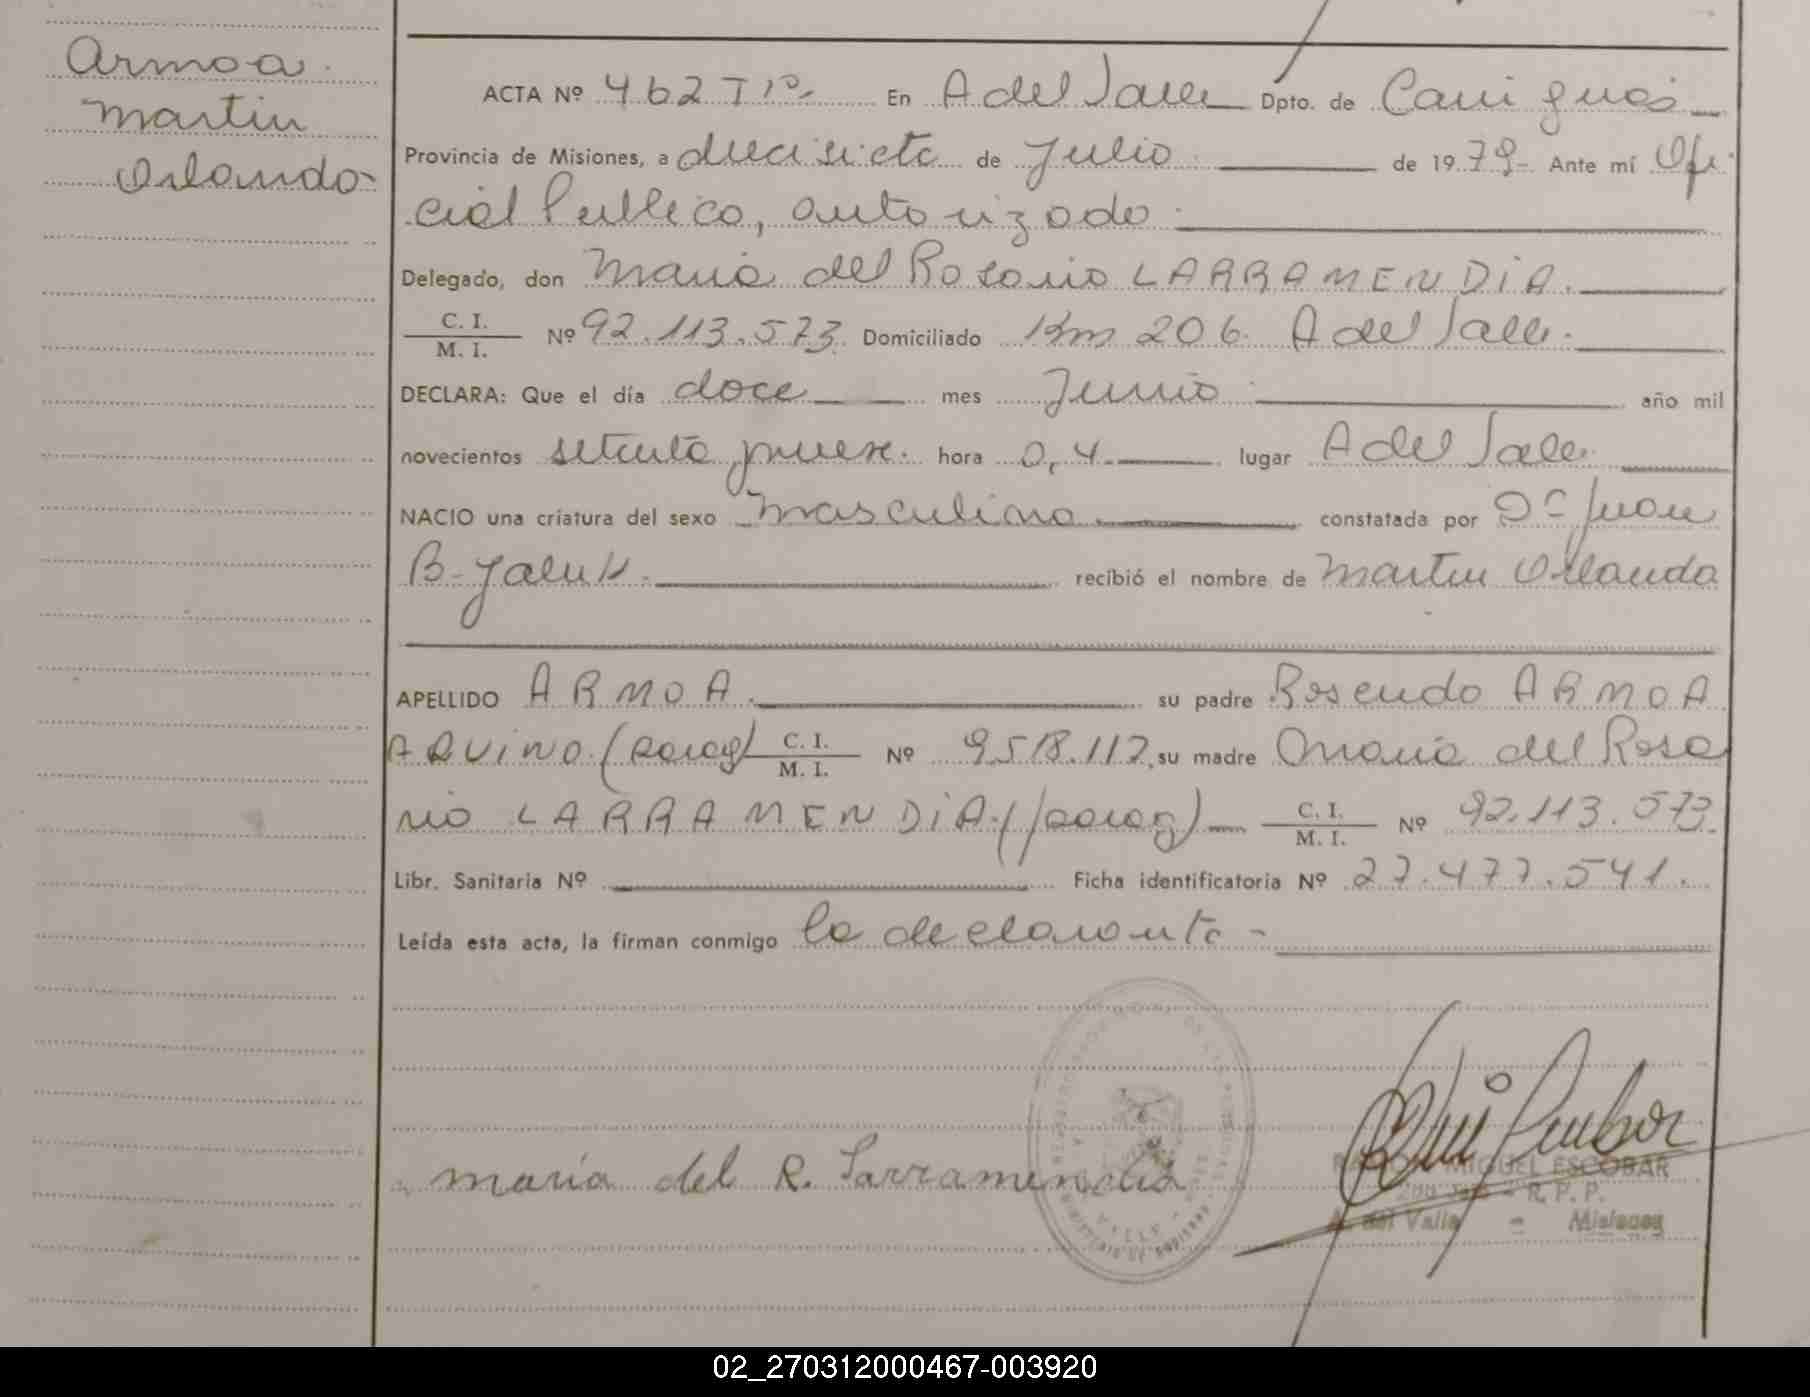 Armoa
Martin
Orlando
ACTA Nº 462 Tº En A del Valle Dpto. de Cainguás
Provincia de Misiones, a diecisiete de Julio de 1979 Ante mí Ofi
cial Publico, autorizado
Delegado, don Maria del Rosario LARRAMENDIA.
C. I.
M. I. Nº 92.113.573 Domiciliado Km 206. A del Valle.
DECLARA: Que el día doce mes Junio año mil
novecientos setenta y nueve. hora 0,4 lugar A del Valle
NACIO una criatura del sexo masculino constatada por Dr Juan
B. recibió el nombre de Martin Orlando
APELLIDO ARMOA. su padre Rosendo ARMOA
AQUINO (parag) C. I.
M. I. Nº 9518.112, su madre Maria del Rosa
rio LARRAMENDIA. (parag) C. I.
M. I. Nº 92.113.573.
Libr. Sanitaria Nº Ficha identificatoria Nº 27.477.541.
Leída esta acta, la firman conmigo la declarante -
maría del R. Larramendia
MIGUEL ESCOBAR
R. P. P.
A. del Valle - Misiones
02_270312000467-003920